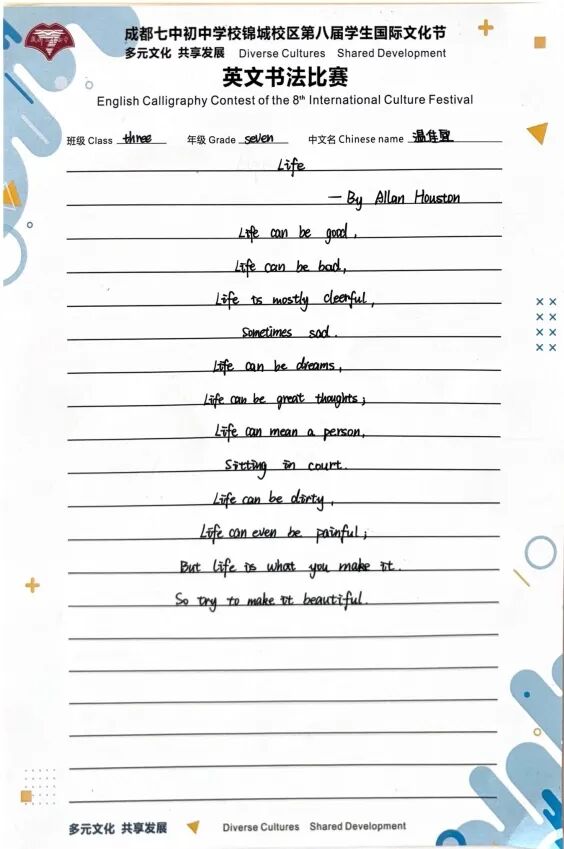 成都七中初中学校锦城校区第八届学生国际文化节
多元文化 共享发展 Diverse Cultures Shared Development
英文书法比赛
English Calligraphy Contest of the 8th International Culture Festival
班级 Class three 年级 Grade seven 中文名 Chinese name 温佳
Life
— By Allan Houston
Life can be good,
Life can be bad,
Life is mostly cleerful,
Sometimes sad.
Life can be dreams,
Life can be great thoughts;
Life can mean a person,
Sitting in court.
Life can be dirty,
Life can even be painful;
But life is what you make it.
So try to make it beautiful.
多元文化 共享发展 Diverse Cultures Shared Development